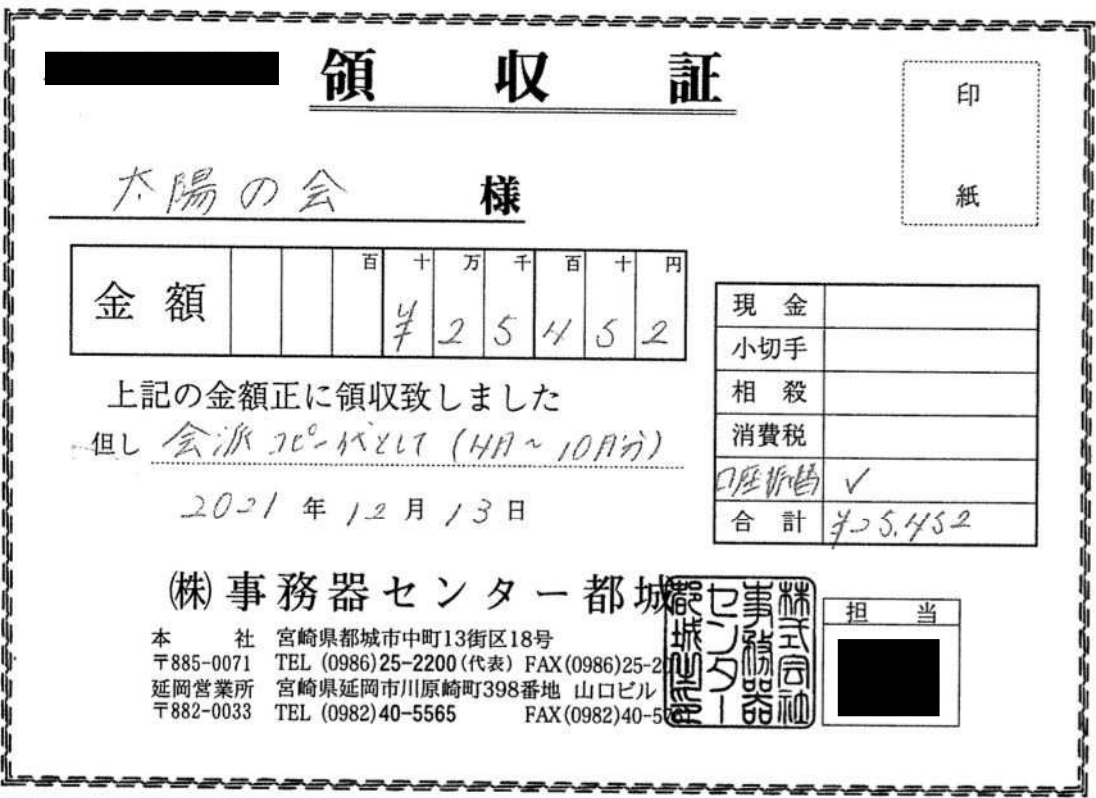 領収証
印
紙
太陽の会 様
百 十 万 千 百 十 円
金額 ¥25452
上記の金額正に領収致しました
但し 会派コピー代として(4月~10月分)
2021年12月13日
現金
小切手
相殺
消費税
口座振替 ✓
合計 ¥25,452
㈱事務器センター都城
本社 宮崎県都城市中町13街区18号
〒885-0071 TEL (0986)25-2200(代表) FAX(0986)25-20
延岡営業所 宮崎県延岡市川原崎町398番地 山口ビル
〒882-0033 TEL (0982)40-5565 FAX(0982)40-5
株式会社
事務器
センター
都城之印
担当